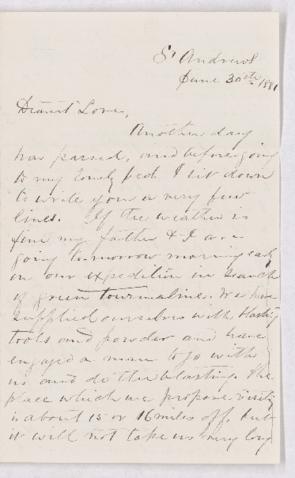 St Andrews
June 30th 1881
Dearest Love,
Another day
has passed, and before going
to my lonely bed I sit down
to write you a very few
lines. If the weather is
fine my father & I are
going tomorrow morning early
on our expedition in search
of green tourmaline. We have
supplied ourselves with blasting
tools and powder and have
engaged a man to go with
us and do the blasting. The
place which we propose visiting
is about 15 or 16 miles off, but
it will not take us very long